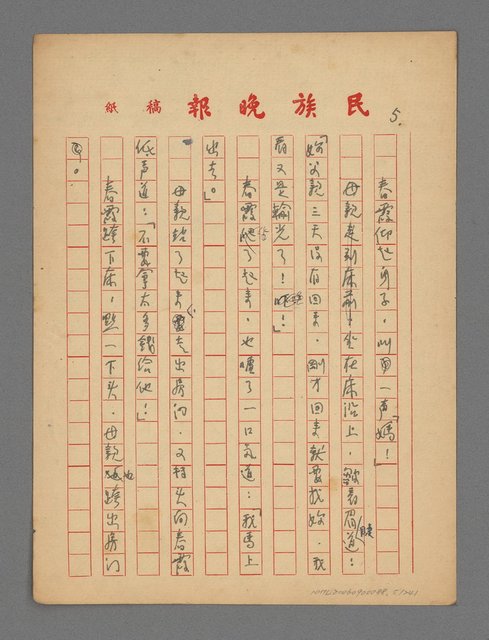 民族晚報 稿紙
5.
春霞仰起身子，叫了一声「媽！」
母親走到床前，坐在床沿上，皺着眉道：
「妳父親三天沒有回來，剛才回來就要找妳，我
看又是輸光了！唉！」
春霞爬了起來，也噓了一口氣道：「我馬上
出去。」
母親站了起來，走出房门，又轉头向春霞
低声道：「不要拿太多錢给他！」
春霞跨下床，點一下头，母親也跨出房门